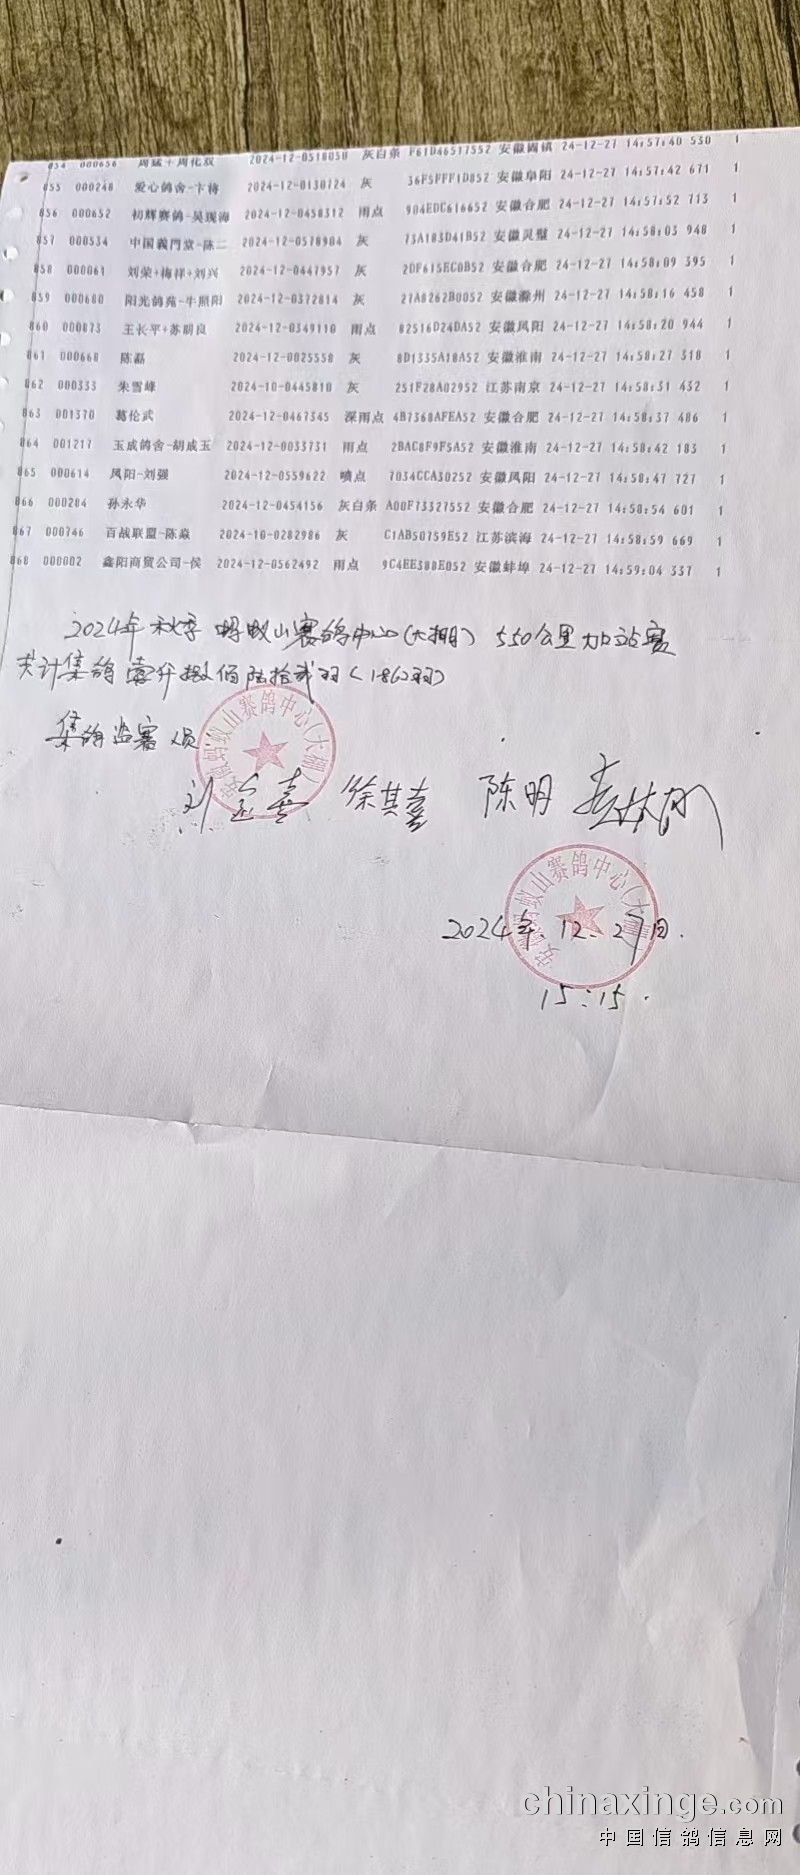 854 000656 周猛+周化双 2024-12-0518058 灰白条 F61D46517552 安徽固镇 24-12-27 14:57:40 530 1
855 000248 爱心鸽舍-卞祷 2024-12-0130724 灰 36F5FFF1D852 安徽阜阳 24-12-27 14:57:42 671 1
856 000652 初辉赛鸽-吴现海 2024-12-0458312 雨点 904EDC616652 安徽合肥 24-12-27 14:57:52 713 1
857 000534 中国義門堂-陈二 2024-12-0578904 灰 73A183D41B52 安徽灵璧 24-12-27 14:58:03 948 1
858 000061 刘荣+梅祥+刘兴 2024-12-0447957 灰 2DF615EC0B52 安徽合肥 24-12-27 14:58:09 395 1
859 000680 阳光鸽苑-牛照阳 2024-12-0372814 灰 27A8262B0052 安徽滁州 24-12-27 14:58:16 458 1
860 000873 王长平+苏明良 2024-12-0349110 雨点 82516D24DA52 安徽凤阳 24-12-27 14:58:20 944 1
861 000668 陈磊 2024-12-0025558 灰 8D1335A18A52 安徽淮南 24-12-27 14:58:27 318 1
862 000333 朱雪峰 2024-10-0445810 灰 251F28A02952 江苏南京 24-12-27 14:58:31 432 1
863 001370 葛伦武 2024-12-0467345 深雨点 4B7368AFEA52 安徽合肥 24-12-27 14:58:37 486 1
864 001217 玉成鸽舍-胡成玉 2024-12-0033731 雨点 2BAC8F9F5A52 安徽淮南 24-12-27 14:58:42 183 1
865 000614 凤阳-刘强 2024-12-0559622 喷点 7034CCA30252 安徽凤阳 24-12-27 14:58:47 727 1
866 000284 孙永华 2024-12-0454156 灰白条 A00F73327552 安徽合肥 24-12-27 14:58:54 601 1
867 000746 百战联盟-陈焱 2024-10-0282986 灰 C1AB50759E52 江苏滨海 24-12-27 14:58:59 669 1
868 000002 鑫阳商贸公司-侯 2024-12-0562492 雨点 9C4EE388E052 安徽蚌埠 24-12-27 14:59:04 337 1
2024年秋季蚂蚁山赛鸽中心(大棚) 550公里加站赛
共计集鸽壹仟捌佰陆拾贰羽(1862羽)
集鸽监赛人员
安徽蚂蚁山赛鸽中心(大棚)
刘金喜 徐其喜 陈明
安徽蚂蚁山赛鸽中心(大棚)
2024年.12.27日.
15:15.
chinaxinge.com
中国信鸽信息网